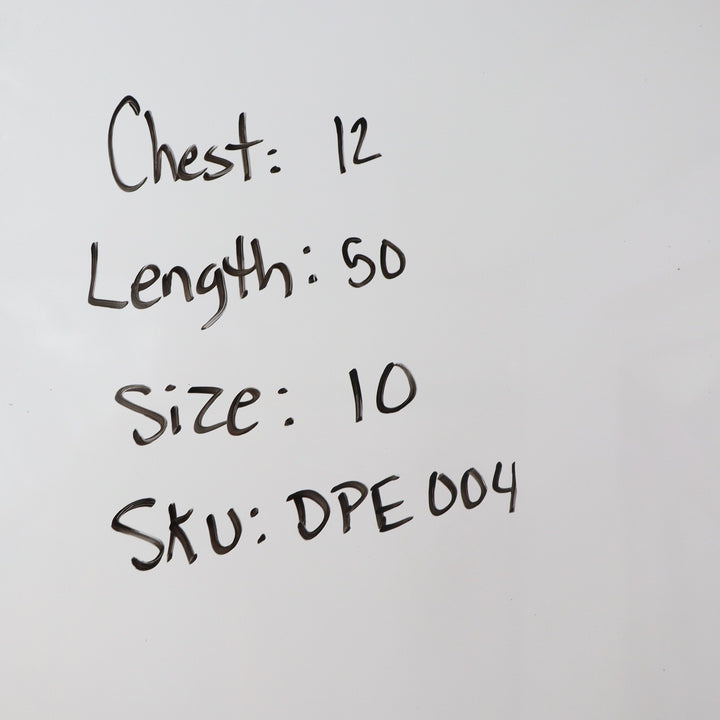 Chest: 12
Length: 50
Size: 10
SKU: DPE 004